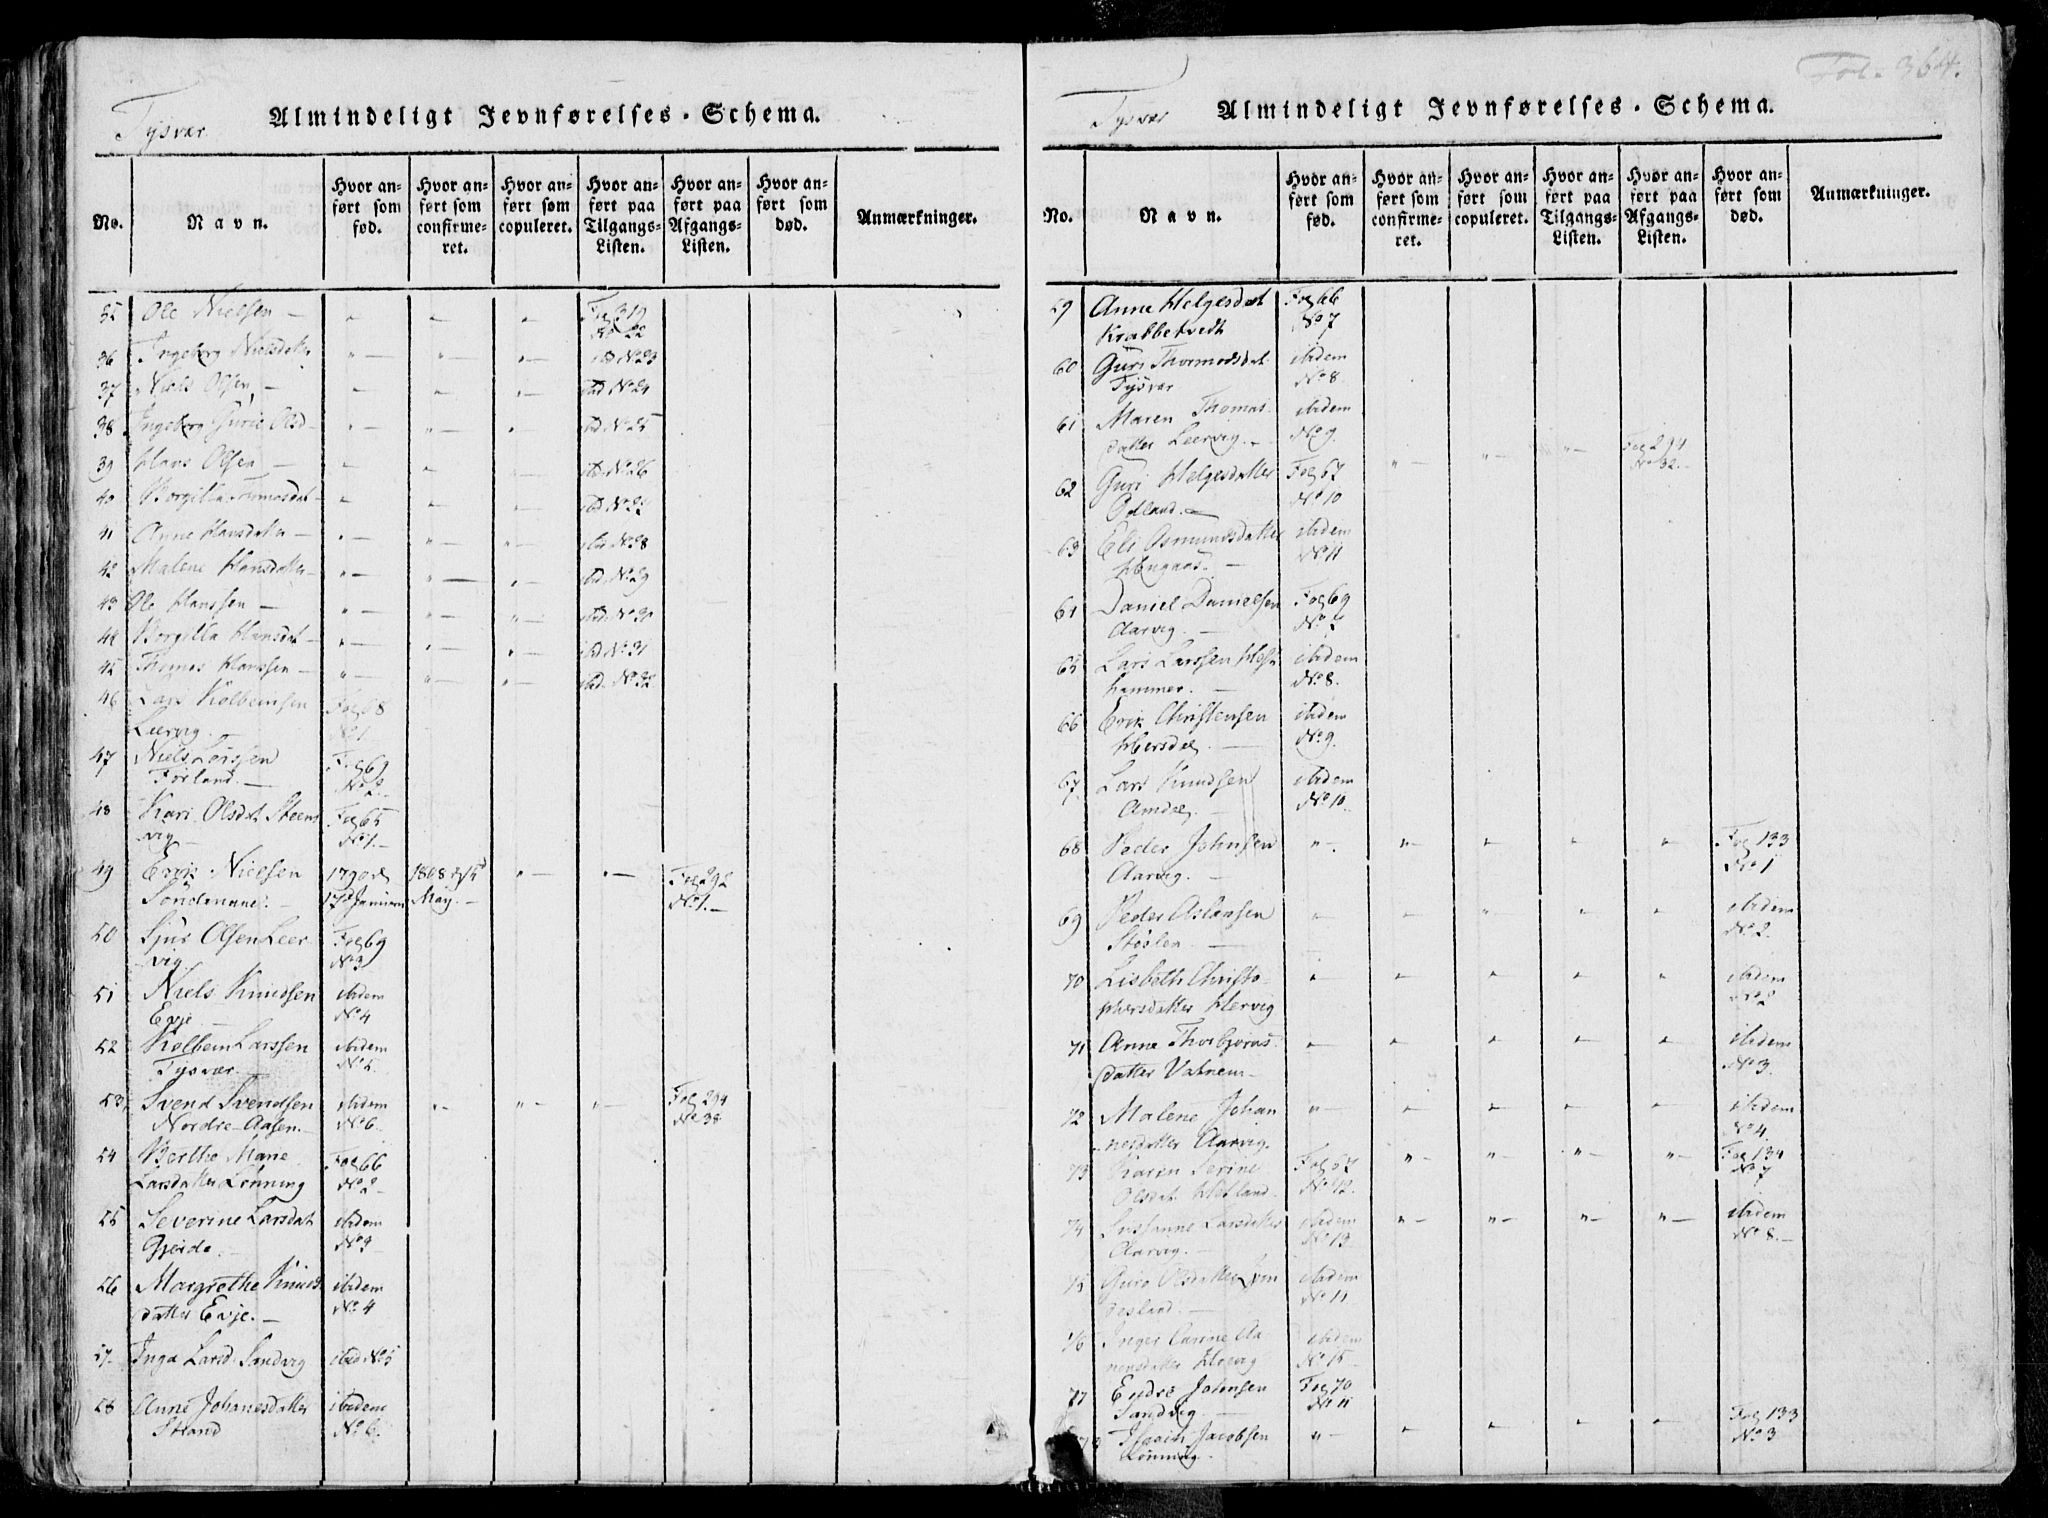 Tysvær
Almindeligt Jevnførelses-Schema.
No.
Navn.
Hvor anført som fød.
Hvor anført som confirmeret.
Hvor anført som copuleret.
Hvor anført paa Tilgangs-Listen.
Hvor anført paa Afgangs-Listen.
Hvor anført som død.
Anmærkninger.
35 Ole Nielsen — " — " — " — Fol 319
No 22
36 Ingeborg Nielsdatter " — " — " — ibd No 23
37 Niels Olsen — " — " — " — ibd No 24
38 Ingeborg Gurie Olsd — " — " — " — ibd No 25
39 Hans Olsen — " — " — " — ibd No 26
40 Borgilla Tormosdat — " — " — " — ibd No 27
41 Anne Hansdatter — " — " — " — ibd No 28
42 Malene Hansdatter — " — " — " — ibd No 29
43 Ole Hanssen — " — " — " — ibd No 30
44 Borgilla Hansdat — " — " — " — ibd No 31
45 Thomas Hanssen — " — " — " — ibd No 32
46 Lars Kolbeinsen Fol 68
Leervig. — No 1
47 Niels Larssen Fol 69
Førland. — No 2
48 Kari Olsdat Steens Fol 65
vig — No 1. —
49 Erik Nielsen 1790 d 1808 d 15 " — " — Fol 292
Søndenaae. — 17d Januari May. — No 1. —
50 Sjur Olsen Leer Fol 69
vig No 3
51 Niels Knudsen ibidem
Evje — No 4
52 Kolbein Larssen ibidem
Tysvær. — No 5
53 Svend Svendsen ibidem " — " — " — Fol 294
Nordre-Aasen. — No 6 No 38
54 Berthe Marie Fol 66
Larsdatter Lønning No 2
55 Severine Larsdat ibidem
Gjerde. — No 3
56 Margrethe Knuds ibidem
datter Evje. — No 4
57 Inga Larsd. Sandvig ibd No 5
58 Anne Johanesdatter ibidem
Strand No 6
Fol. 364.
Tysvær
Almindeligt Jevnførelses-Schema.
No.
Navn.
Hvor anført som fød.
Hvor anført som confirmeret.
Hvor anført som copuleret.
Hvor anført paa Tilgangs-Listen.
Hvor anført paa Afgangs-Listen.
Hvor anført som død.
Anmærkninger.
59 Anne Helgesdat Fol 66
Krabbetvedt No 7
60 Guri Thormodsdat ibidem
Tysvær No 8
61 Maren Thomas ibidem
datter Leervig. — No 9. " — " — " — Fol 294
No 32. —
62 Guri Helgesdatter Fol 67
Odland. — No 10
63 Eli Osmundsdatter ibidem
No 11
64 Daniel Danielsen Fol 69
Aarvig. — No 7
65 Lars Larssen Hest ibidem
hammer. — No 8.
66 Erik Christensen ibidem
Hersdal. — No 9.
67 Lars Knudsen ibidem
Amdal. No 10
68 Peder Johnsen " — " — " — " — " — Fol 133
Aarvig. — No 1
69 Peder Aslaksen " — " — " — " — " — ibidem
Støslen. — No 2.
70 Lisbeth Christo " — " — " — " — " — ibidem
phersdatter Hervig No 2
71 Anne Thorbjørns " — " — " — " — " — ibidem
datter Vatnem — No 3.
72 Malene Johan " — " — " — " — " — ibidem
nesdatter Aarvig. No 4.
73 Karen Serine Fol 67 " — " — " — " — Fol 134
Olsdat. Hetland. No 12. No 7
74 Susanne Larsdatter ibidem " — " — " — " — ibidem
Aarvig. — No 13 No 8. —
75 Guro Olsdatter ibidem
desland. — No 11
76 Inger Carine Aa ibidem
nensdatter No 15
77 Endre Johnsen Fol 70
Sandvig. — No 11
Jacobsen " — " — " — " — " — Fol 133
Lønning. No 3